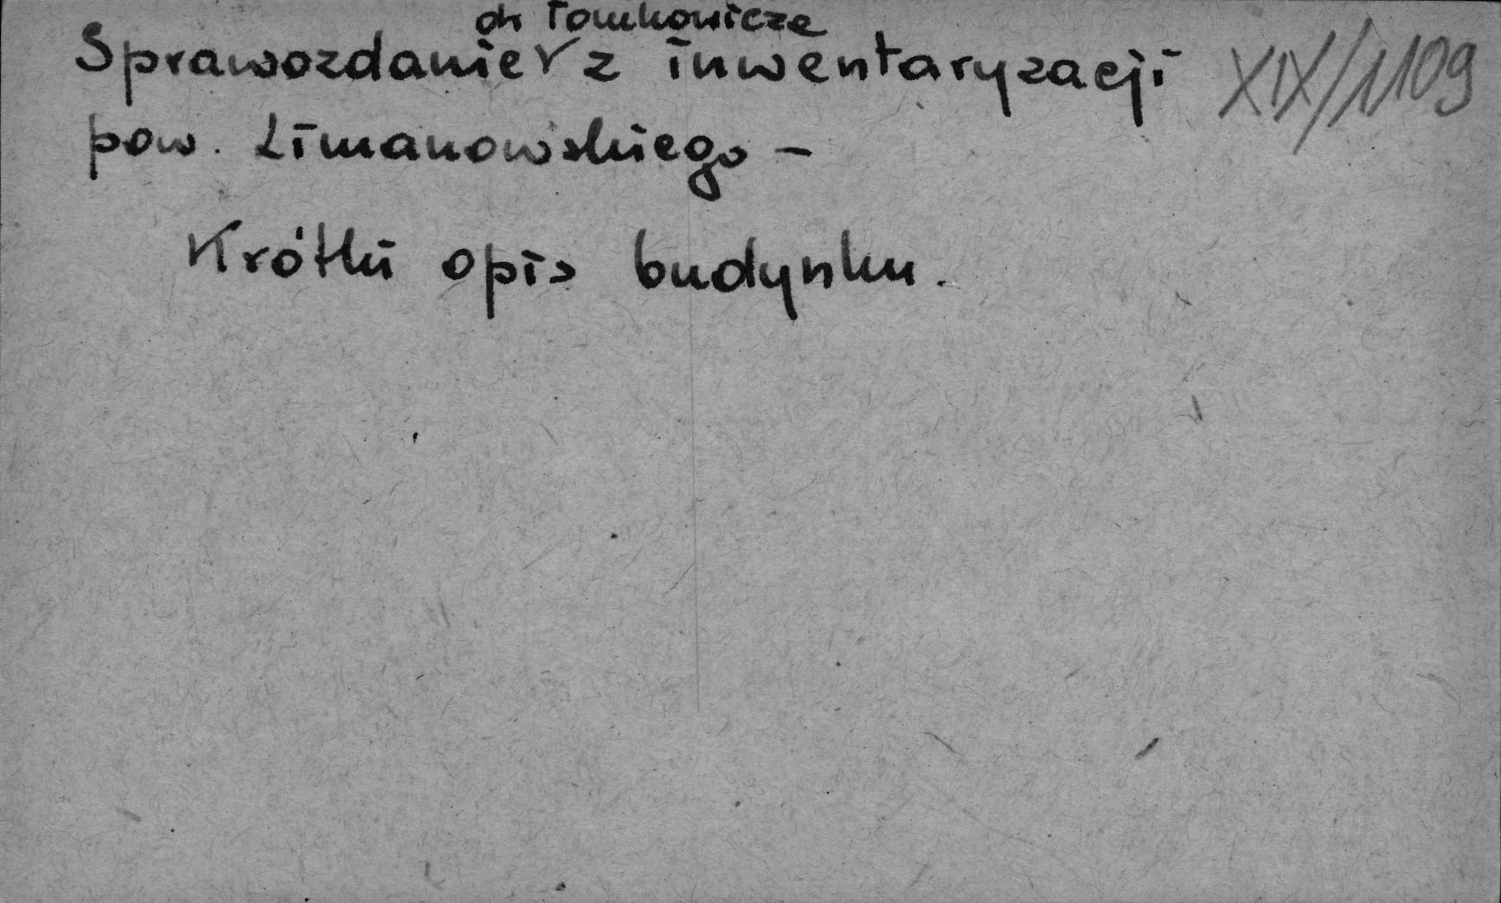 dr Tomkowicza
Sprawozdanie z inwentaryzacji XIX/1109
pow. Limanowskiego –
Krótki opis budynku.